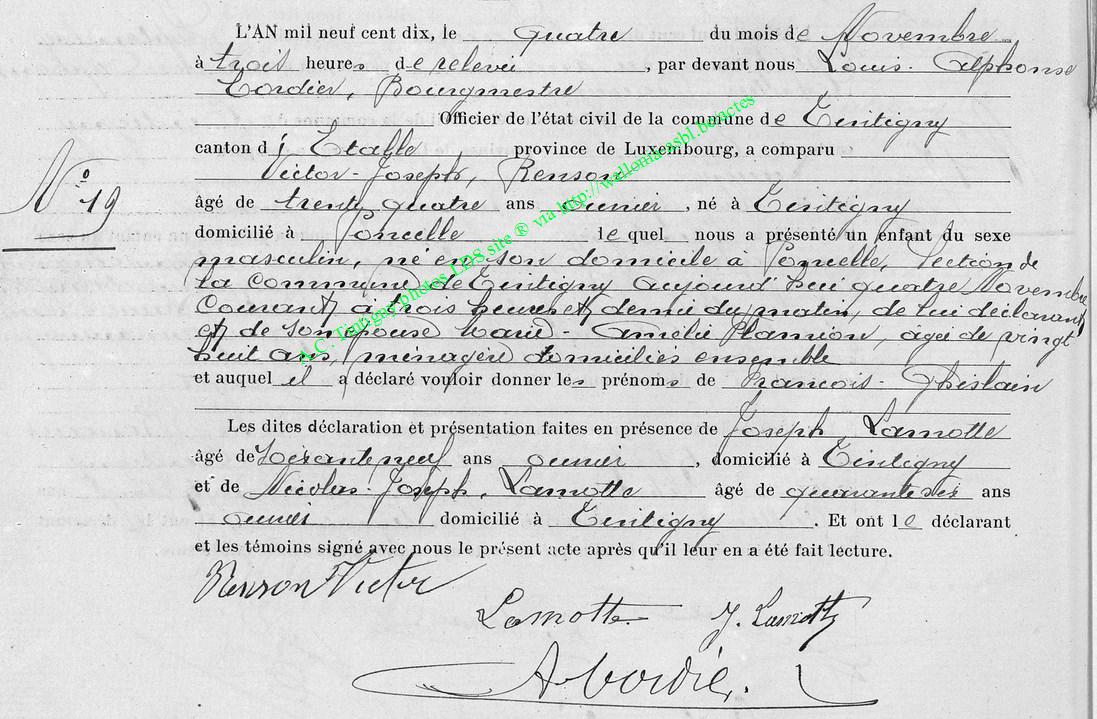 L'AN mil neuf cent dix, le quatre du mois de Novembre
à trois heures de relevée, par devant nous Louis-Alphonse
Cordier, Bourgmestre
Officier de l'état civil de la commune de Tintigny
canton d'Etalle province de Luxembourg, a comparu
Victor-Joseph, Renson
N° 19
âgé de trente quatre ans ouvrier, né à Tintigny
domicilié à Poncelle lequel nous a présenté un enfant du sexe
masculin, né en son domicile à Poncelle, section de
la commune de Tintigny aujourd'hui quatre Novembre
courant à trois heures et demie du matin, de lui déclarant
et de son épouse Marie-Amélie Flamion, agée de vingt
huit ans, ménagère domiciliés ensemble
et auquel il a déclaré vouloir donner les prénoms de François-Ghislain
Les dites déclaration et présentation faites en présence de Joseph Lamotte
âgé de ans ouvrier, domicilié à Tintigny
et de Nicolas-Joseph, Lamotte âgé de quarante six ans
ouvrier domicilié à Tintigny. Et ont le déclarant
et les témoins signé avec nous le présent acte après qu'il leur en a été fait lecture.
Renson Victor
Lamotte J. Lamotte
A Cordier.
A.C. Tintigny photos LDS site ® via http://wallonia-asbl.be/actes